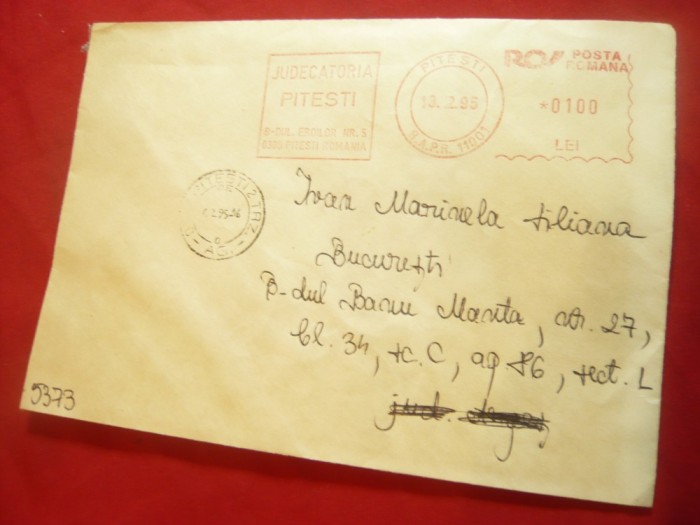 JUDECATORIA
PITESTI
B-DUL. EROILOR NR. 5
PITESTI ROMANIA
PITESTI
13. 2. 95
R.A.P.R. 11001
POSTA
ROMANA
*0100
LEI
PITESTI 2
AG.
Ivan Marinela Liliana
Bucureşti
B-dul Banu Manta, nr. 27,
bl. 34, sc. C, ap. 86, sect. 1
jud.
5373